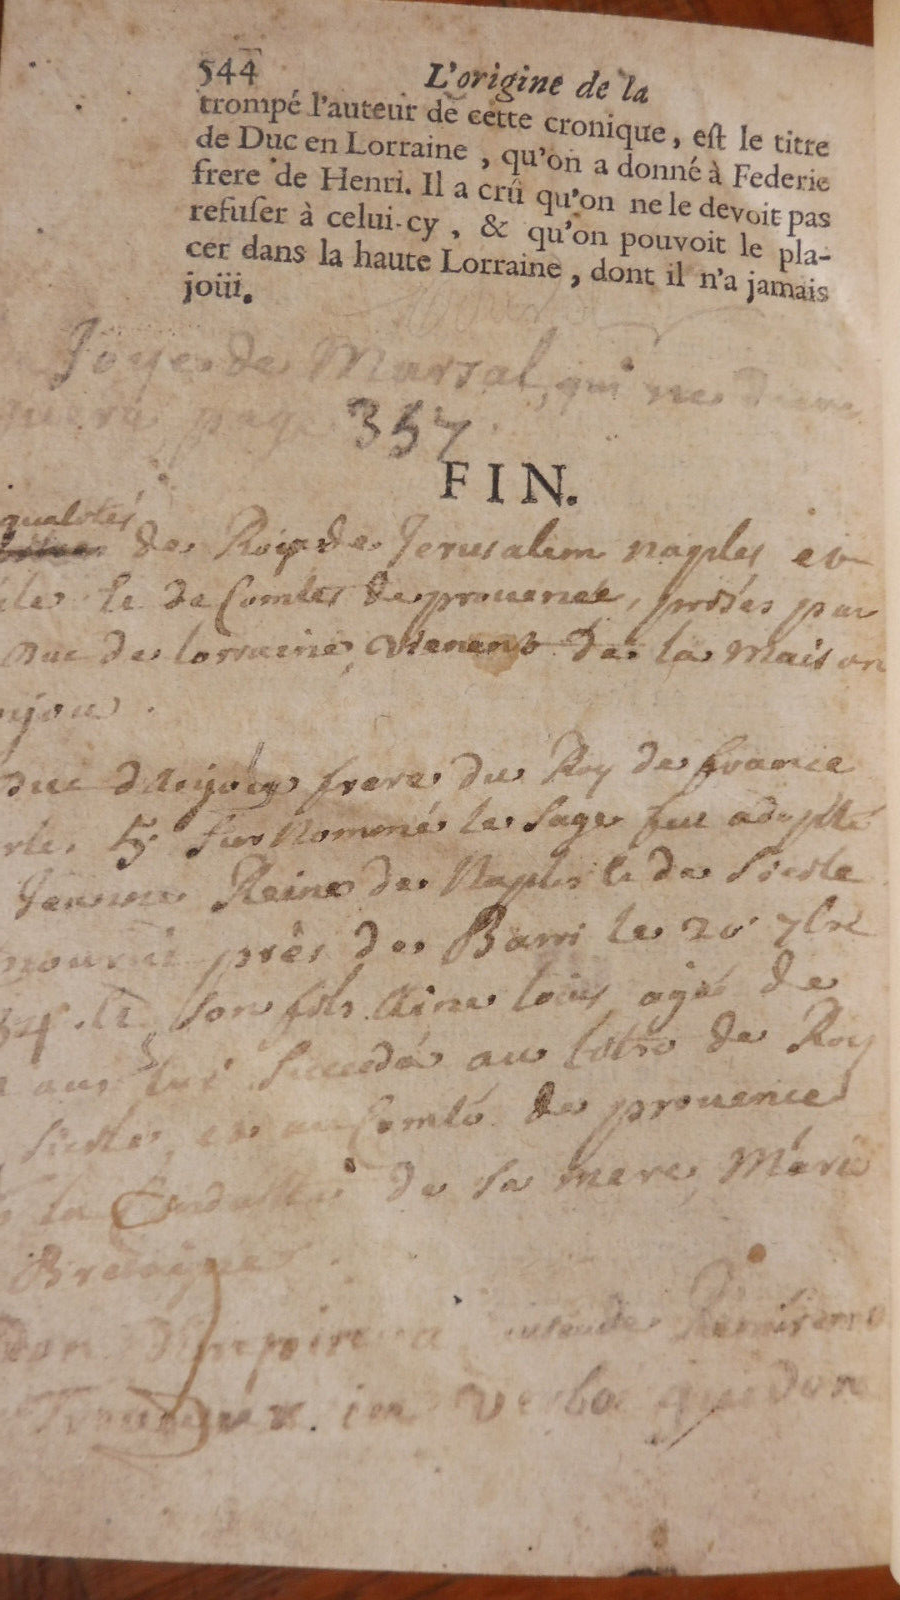 544 L'origine de la
trompé l'auteur de cette cronique, eſt le titre
de Duc en Lorraine, qu'on a donné à Federic
frere de Henri. Il a crû qu'on ne le devoit pas
refuſer à celui-cy, & qu'on pouvoit le pla-
cer dans la haute Lorraine, dont il n'a jamais
joüi.
Joyes de Marsal, qui ne
page 357
FIN.
qualités
de Roy de Jerusalem naples et
de Comtes de prouence, prises par
Duc de lorraine, vienent de la maison
njou.
duc d'Anjou frere du Roy de france
5 surnommé le sage fut adopté
Jeanne Reine de Naples & de Sicile
mourut près de Barri le 20 7bre
son fils Ainé louis agé de
ans lui succeda au titre de Roy
Sicile, et au Comté de prouence
la de sa mere, Marie
Bretaigne.
in verbo